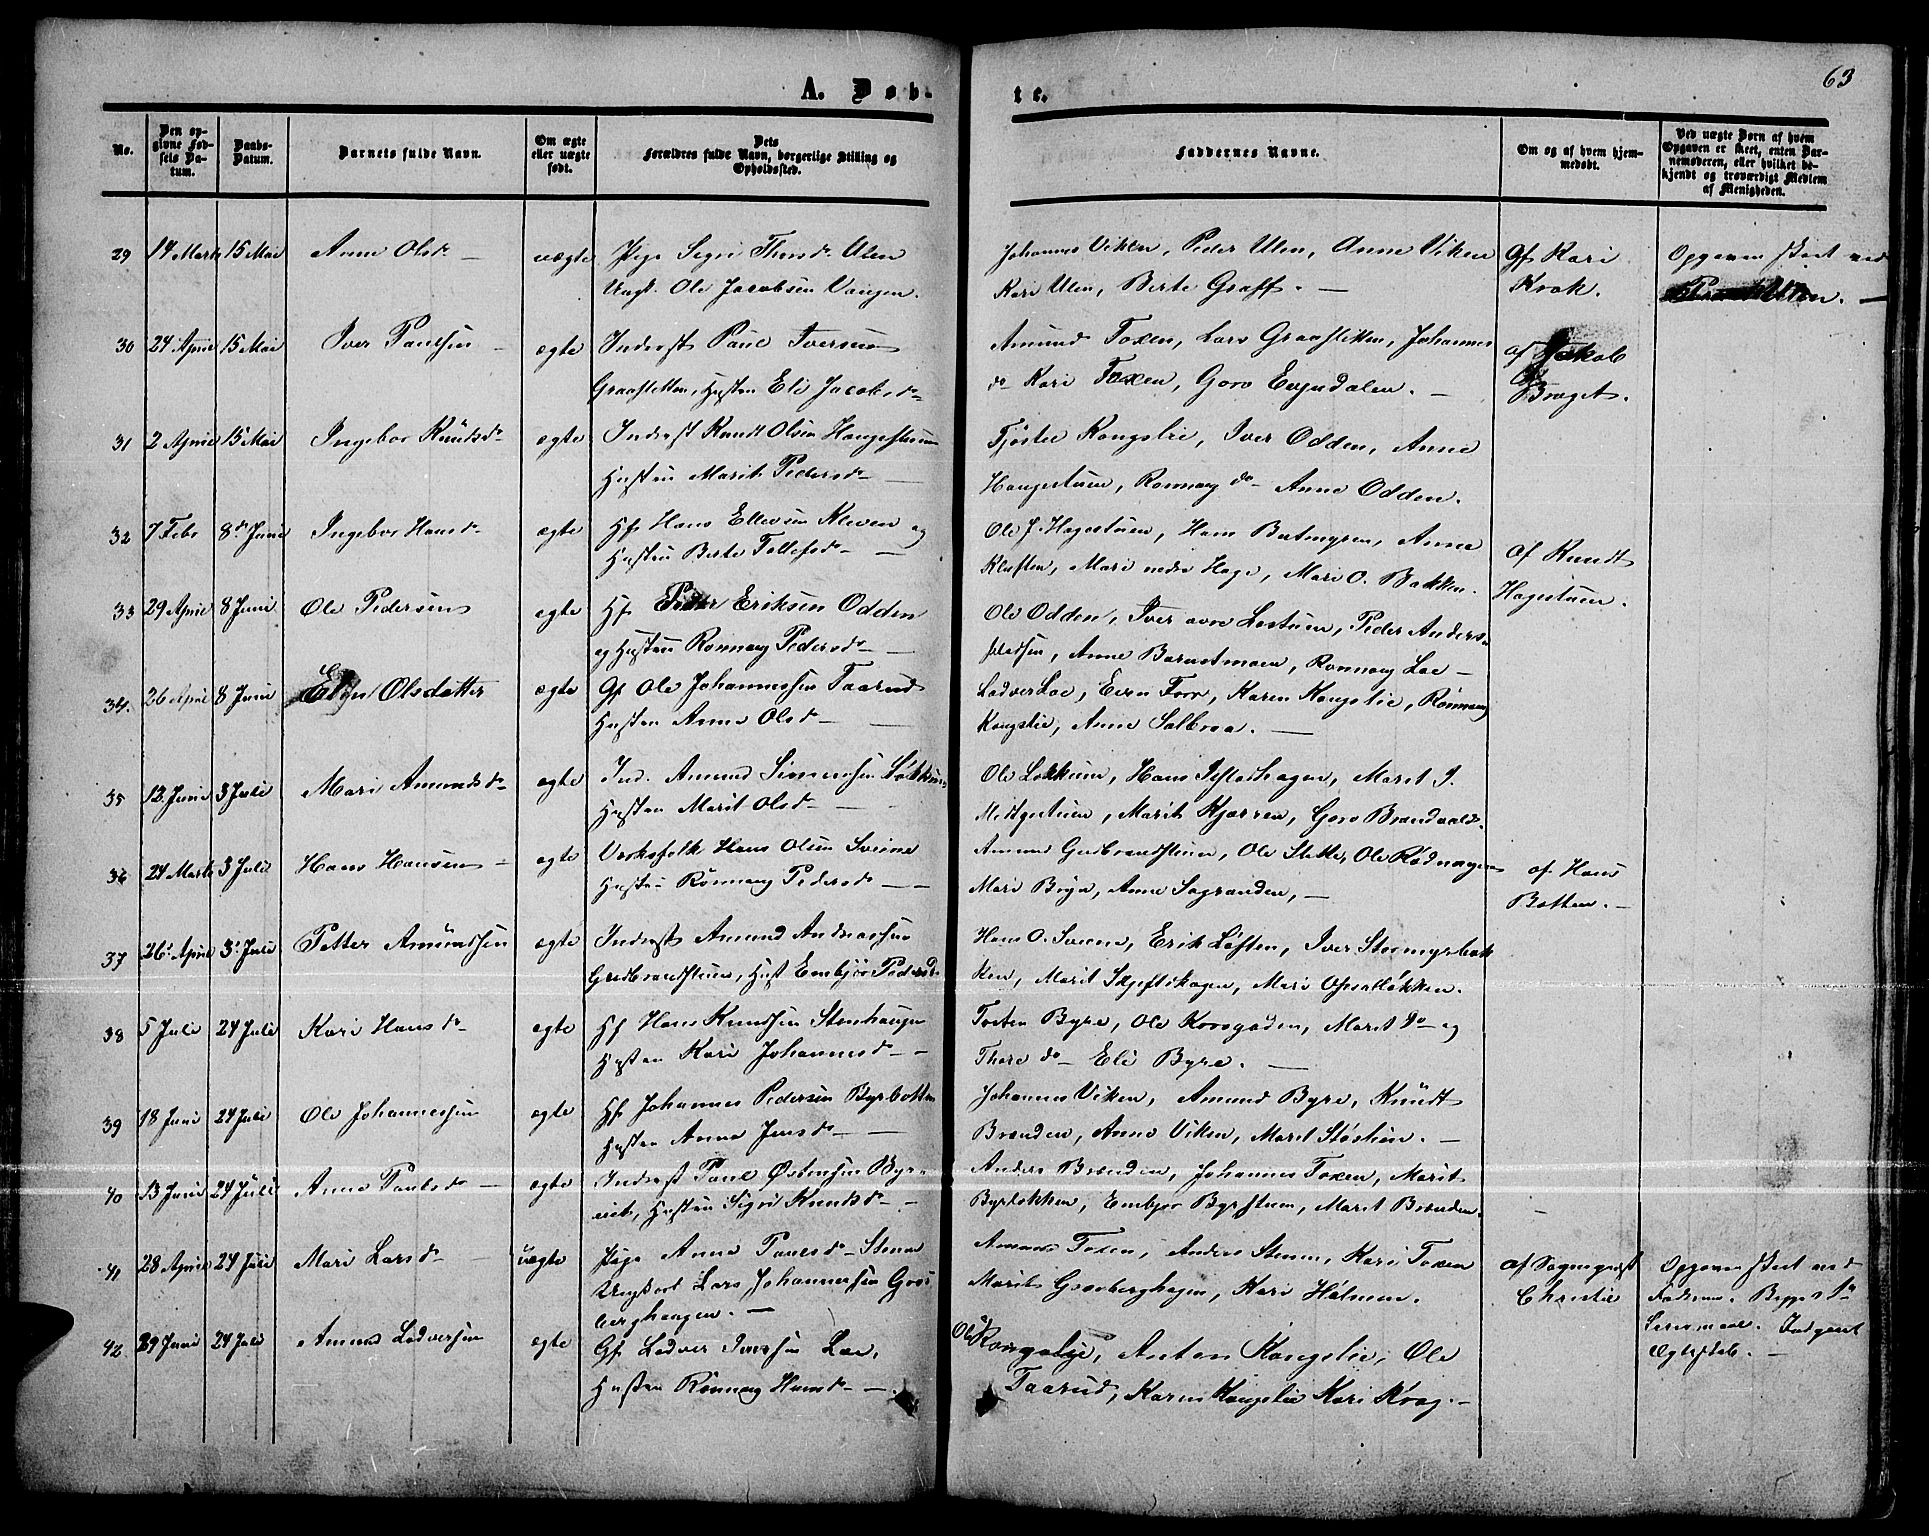 63
A. Døb-
te.
No.
Den op-
givne Fød-
sels Da-
tum.
Daabs-
Datum.
Barnets fulde Navn.
Om ægte
eller uægte
født.
Dets
Forældres fulde Navn, borgerlige Stilling og
Opholdssted.
Faddernes Navne.
Om og af hvem hjem-
medøbt.
Ved uægte Børn af hvem
Opgaven er skeet, enten Bar-
nemoderen, eller hvilket be-
kjendt og troværdigt Medlem
af Menigheden.
29 14 Marts 15 Mai Anne Olsd. uægte Pige Sigri Thorsd. Ulen
Ungk. Ole Jacobsen Vangen.
Johannes Viken, Peder Ulen, Anne Viken
Kari Ulen, Birte Graff.
Af Kari
Krok.
Opgaven skeet ved
30 24 April 15 Mai Iver Paulsen ægte Inderst Paul Iversen
Graasletten, Hustru Eli Jacobsd.
Amund Toxen, Lars Graasletten, Johannes
do Kari Toxen, Goro
af Jakob
Braget.
31 2 April 15 Mai Ingebor Knudsd. ægte Inderst Knud Olsen Haugestuen
Hustru Marit Pedersd.
Tjøstel Kongslie, Iver Odden, Anne
Haugestuen, Ronnaug do Anne Odden.
32 7 Febr 8de Juni Ingebor Hansd. ægte Hf Hans Ellevsen Kleven og
Hustru Birte Tollefsd.
Ole J. Hagestuen, Hans Anne
Kluften, Mari nedre Hage, Mari O. Bakken.
af Knudt
Hagestuen.
33 29 April 8 Juni Ole Pedersen ægte Hf Peder Eriksen Odden
og Hustru Ronnaug Pedersd.
Ole Odden, Iver øvre Lostuen, Peder Anders
Anne Ronnaug Loe
34. 26 April 8 Juni Olsdatter ægte Gf Ole Johannessen Taarud
Hustru Anne Olsd.
Ladver Loe, Karen Kongslie, Rønnaug
Kongslie, Anne
35 12 Juni 3 Juli Mari Amundsd. ægte Ind. Amund Simensen Løkken
Hustru Marit Olsd.
Ole Løkken, Hans Marit J.
Midtgestuen, Marit Kjørren, Goro
36 24 Marts 3 Juli Hans Hansen ægte Verksfolk Hans Olsen Sveine
Hustru Rønnaug Pedersd.
Amund Gudbrandstuen, Ole Slette, Ole
Mari Bryn, Anne Sagranden,
af Hans
Botten.
37 26 April 3 Juli Petter Amundsen ægte Inderst Amund Andreassen
Gudbrandstuen, Hust Embjør Pedersd.
Hans O. Sveine, Erik Løften, Iver Stormyrbak
ken, Marit Skjeftehagen, Mari Opsatløkken.
38 5 Juli 24 Juli Kari Hansd. ægte Hf Hans Knudsen Stenhaugen
Hustru Kari Johannesd.
Tosten Byre, Ole Korsgaden, Marit do og
Thore do Eli Byre.
39 18 Juni 24 Juli Ole Johannessen ægte Hf Johannes Pedersen Byrbotten
Hustru Anne Jensd.
Johannes Viken, Amund Byre, Knudt
Brenden, Anne Viken, Marit
40 13 Juni 24 Juli Anne Paulsd. ægte Inderst Paul Østensen Byr-
Hustru Sigri Knudsd.
Anders Brenden, Johannes Toxen, Marit
Byrløkken, Embjør Byrstuen, Marit Brenden.
41 28 April 24 Juli Mari Larsd. uægte Pige Anne Paulsd.
Ungkarl Lars Johannessen
berghaugen.
Amund Toxen, Anders Kari Toxen
Marit Graaberghagen, Kari Holmen.
af Sogneprest
Christie
Opgaven skeet ved
Faderen.
Indgaaet
Ægteskab.
42 29 Juni 24 Juli Amund Ladversen ægte Gf Ladver Iversen Loe,
Hustru Rønnaug Hansd.
Ole Kongslie, Anton Kongslie, Ole
Taarud, Karen Kongslie Kari Krog.